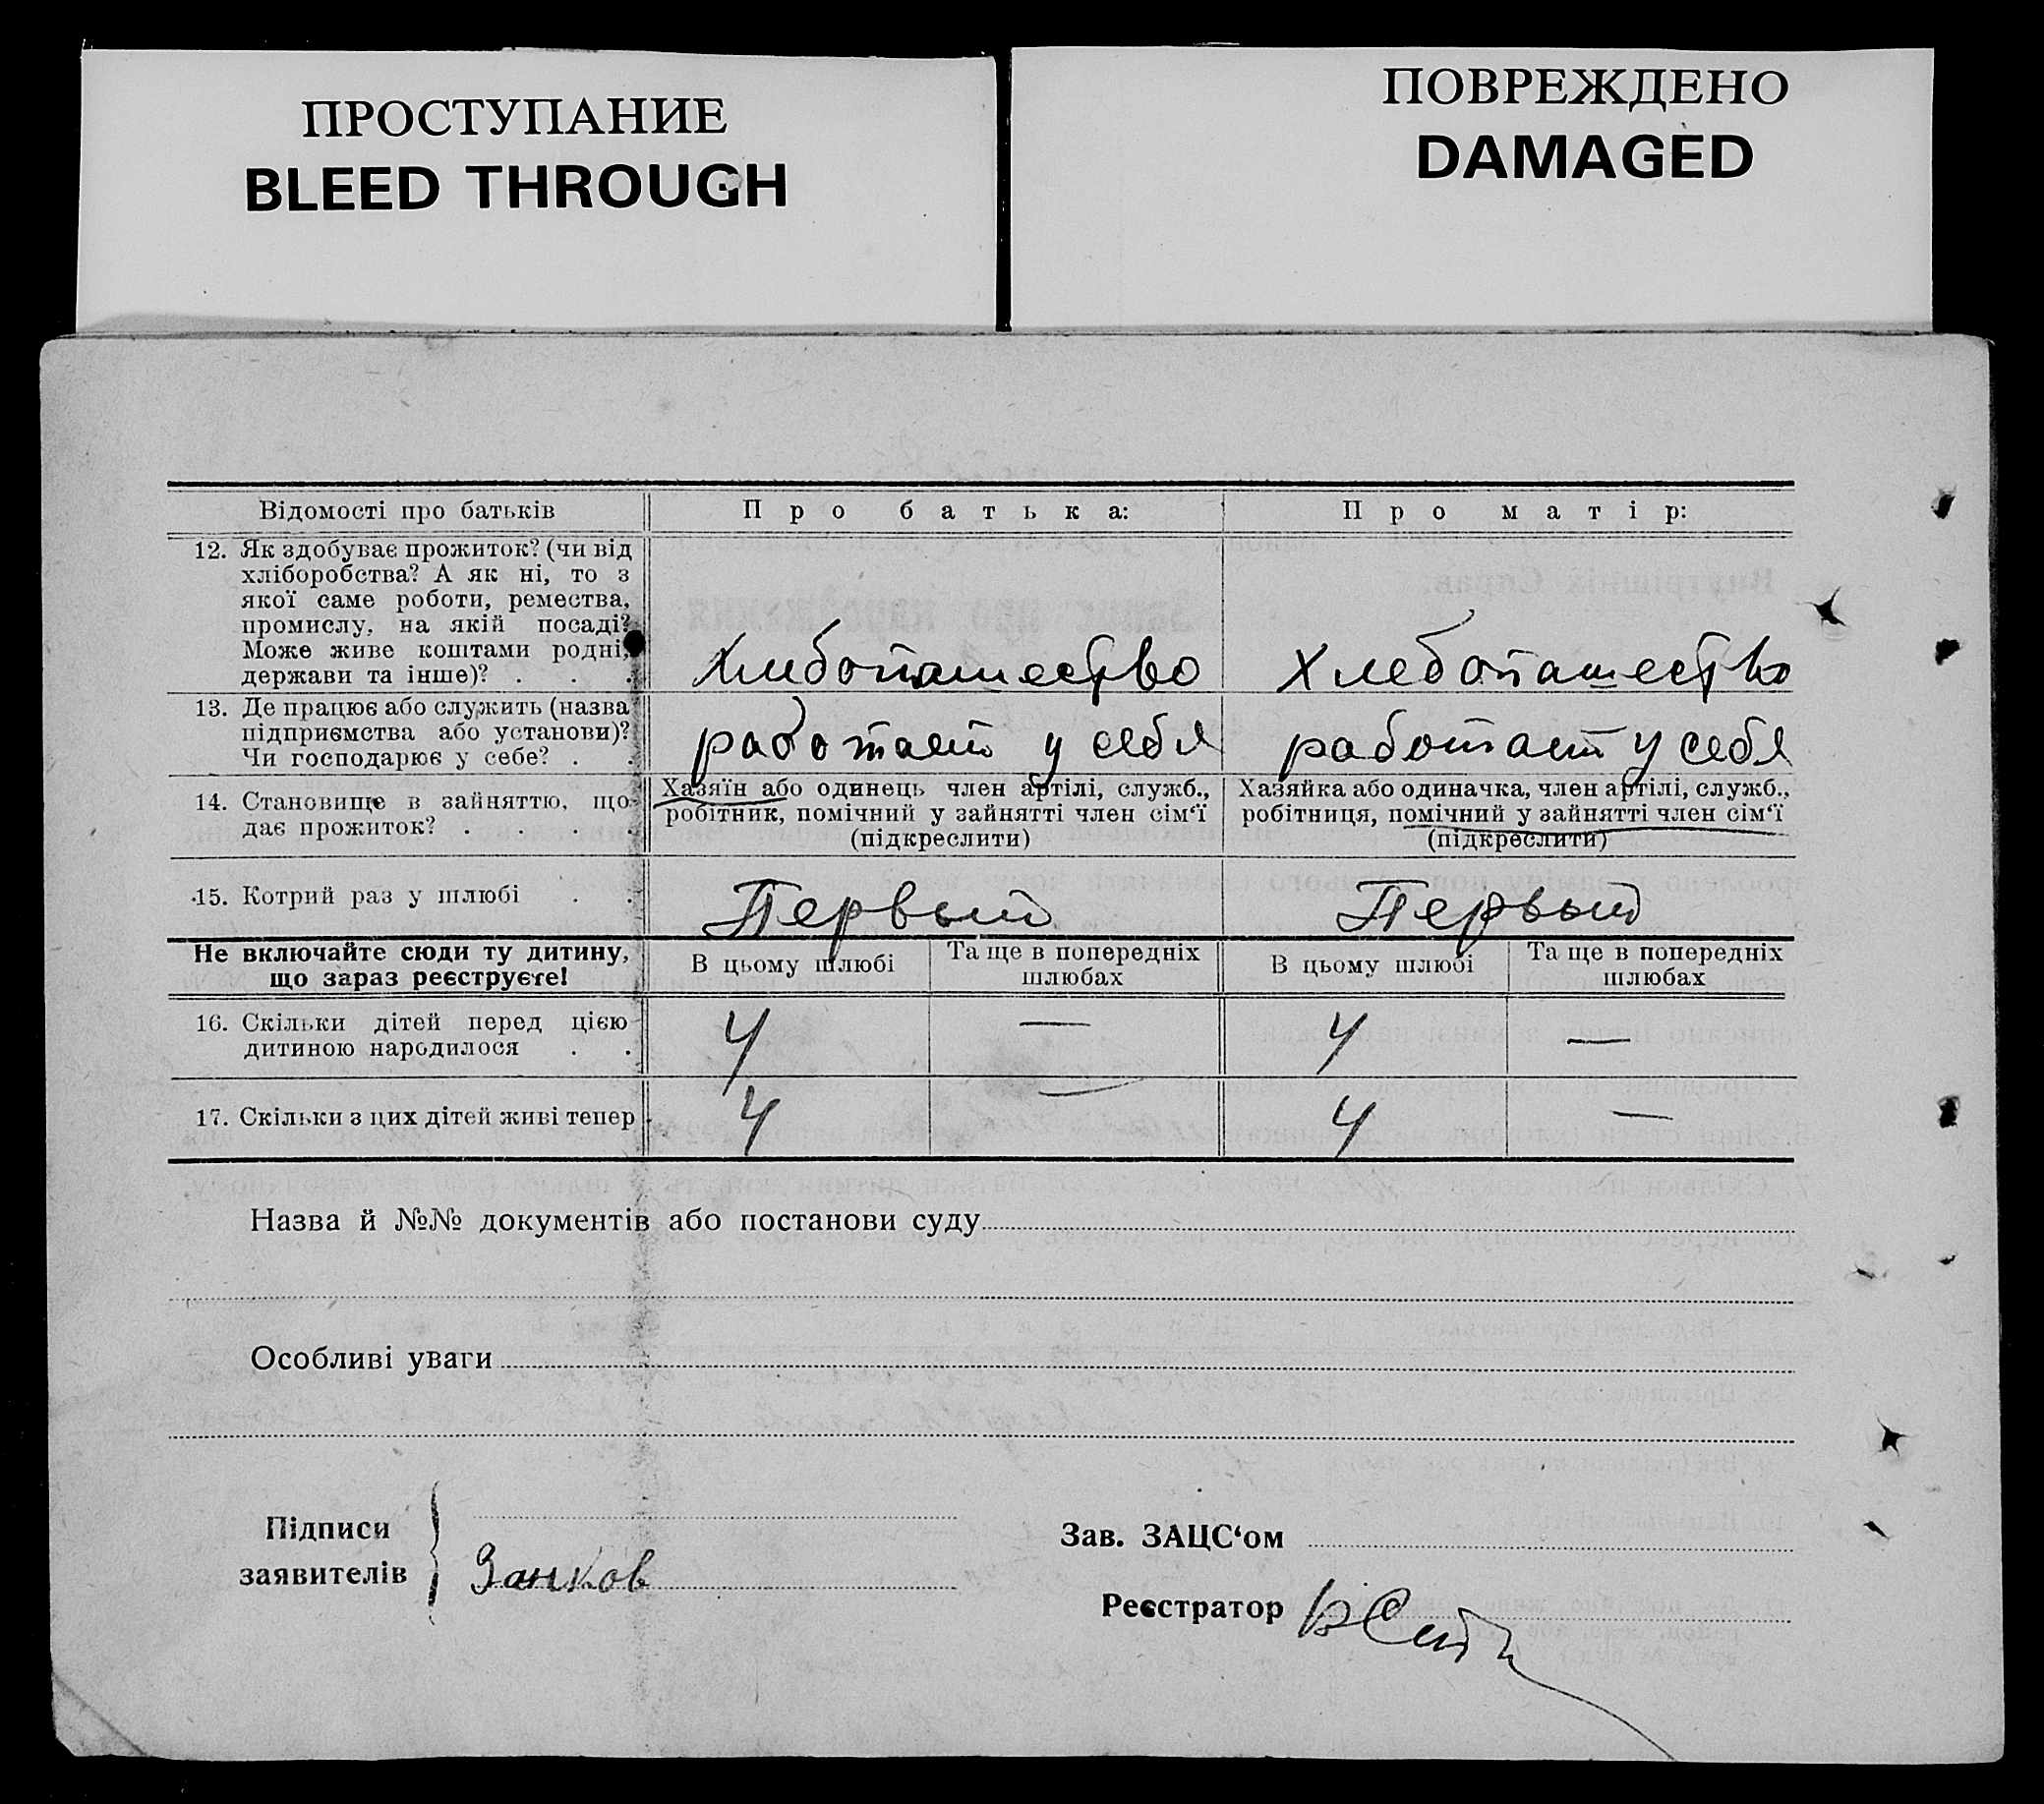 ПРОСТУПАНИЕ
BLEED THROUGH
ПОВРЕЖДЕНО
DAMAGED
Відомості про батьків
Про батька:
Про матір:
12. Як здобуває прожиток? (чи від
хліборобства? А як ні, то з
якої саме роботи, ремества,
промислу, на якій посаді?
Може живе коштами родні,
держави та інше)? . . .
Хлибопашество
Хлебопашество
13. Де працює або служить (назва
підприємства або установи)?
Чи господарює у себе? . .
работает у себя
работает у себя
14. Становище в зайняттю, що
дає прожиток? . . . .
Хазяїн або одинець член артілі, служб.,
робітник, помічний у зайнятті член сім‘ї
(підкреслити)
Хазяйка або одиначка, член артілі, служб.,
робітниця, помічний у зайнятті член сім‘ї
(підкреслити)
15. Котрий раз у шлюбі . .
Первый
Первый
Не включайте сюди ту дитину,
що зараз реєструєте!
В цьому шлюбі
Та ще в попередніх
шлюбах
В цьому шлюбі
Та ще в попередніх
шлюбах
16. Скільки дітей перед цією
дитиною народилося . .
4
—
4
—
17. Скільки з цих дітей живі тепер
4
—
4
—
Назва й №№ документів або постанови суду
Особливі уваги
Підписи
заявителів
Занков
Зав. ЗАЦС‘ом
Реєстратор